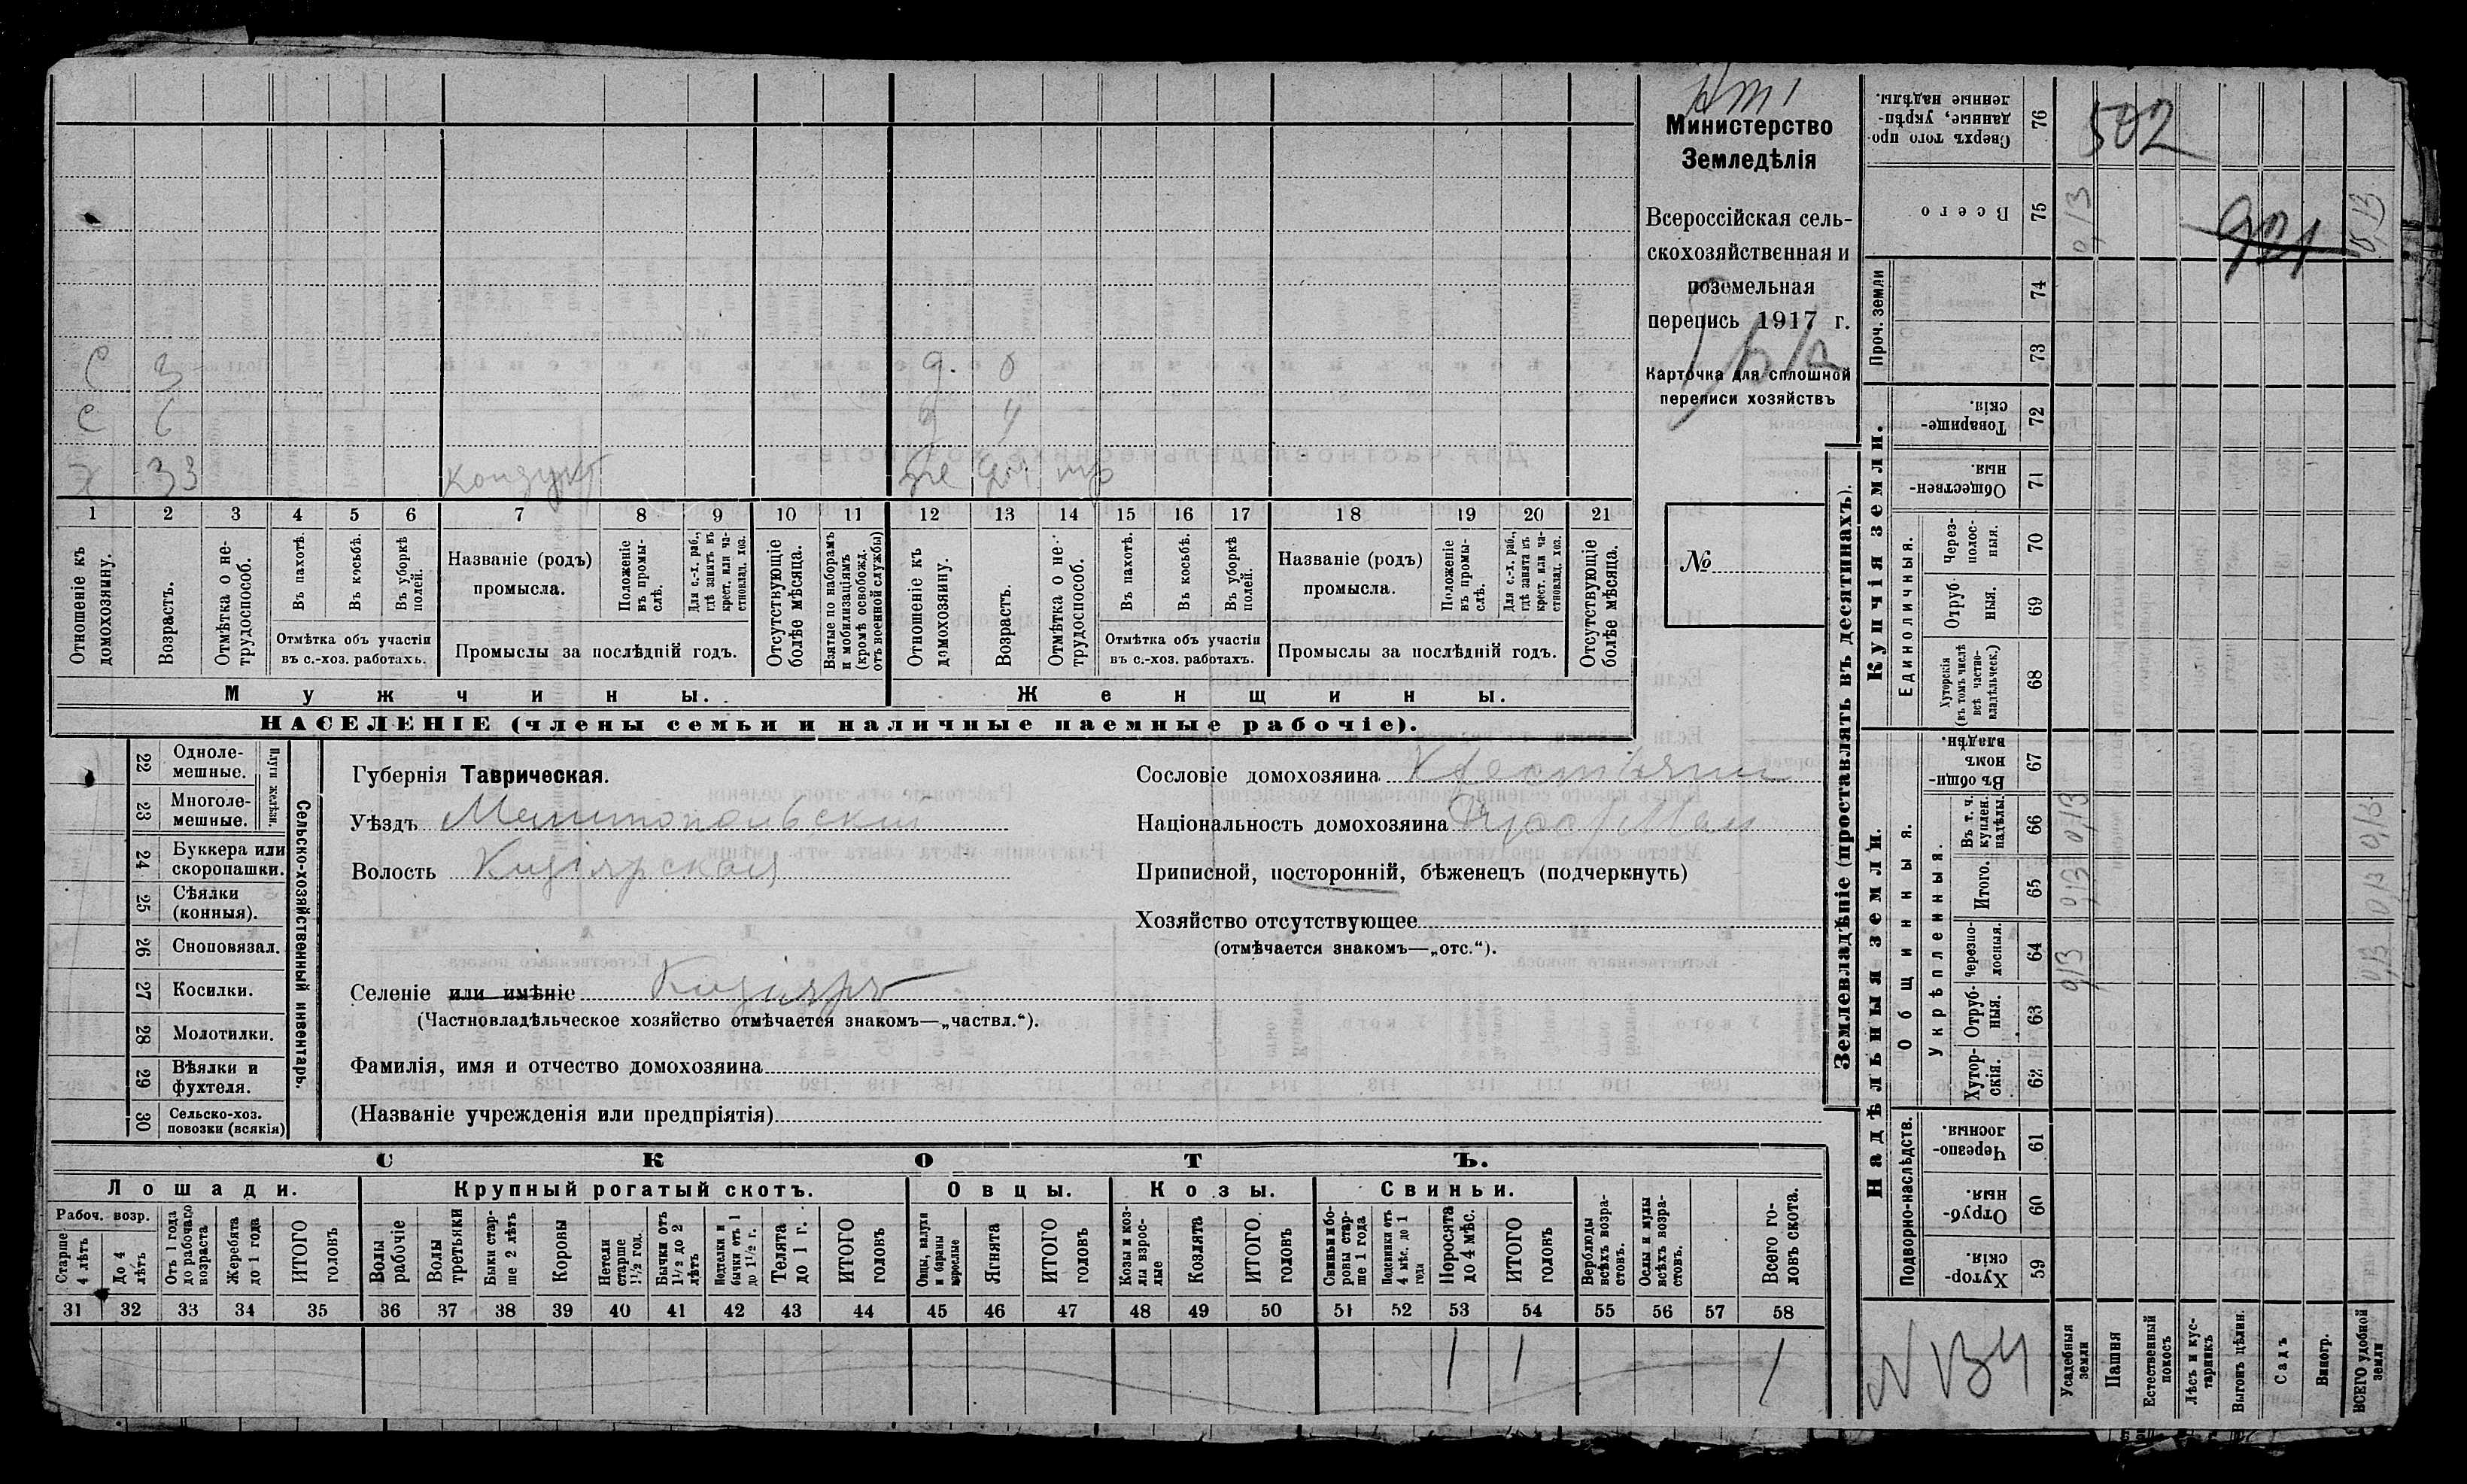 Министерство
Земледѣлія
Всероссійская сель-
скохозяйственная и
поземельная
перепись 1917 г.
Карточка для сплошной
переписи хозяйствъ
№
С 3 д. 8
С 6 д 4
Х 33 кондукт же
1 2 3 4 5 6 7 8 9 10 11 12 13 14 15 16 17 18 19 20 21
Отношеніе къ домохозяину.
Возрастъ.
Отмѣтка о не-трудоспособ.
Въ пахотѣ.
Въ косьбѣ.
Въ уборкѣ полей.
Отмѣтка объ участіи въ с.-хоз. работахъ.
Названіе (родъ) промысла.
Положеніе въ промы-слѣ.
Для с.-х. раб., гдѣ занятъ въ крест. или ча-стновлад. хоз.
Промыслы за послѣдній годъ.
Отсутствующіе болѣе мѣсяца.
Взятые по наборамъ и мобилизаціямъ (кромѣ освобожд. отъ военной службы)
Отношеніе къ домохозяину.
Возрастъ.
Отмѣтка о не-трудоспособ.
Въ пахотѣ.
Въ косьбѣ.
Въ уборкѣ полей.
Отмѣтка объ участіи въ с.-хоз. работахъ.
Названіе (родъ) промысла.
Положеніе въ промы-слѣ.
Для с.-х. раб., гдѣ занята въ крест. или ча-стновлад. хоз.
Промыслы за послѣдній годъ.
Отсутствующіе болѣе мѣсяца.
Мужчины. Женщины.
НАСЕЛЕНІЕ (члены семьи и наличные наемные рабочіе).
22 Одноле-мешные.
23 Многоле-мешные.
Плуги желѣзн.
24 Буккера или скоропашки.
25 Сѣялки (конныя).
26 Сноповязал.
27 Косилки.
28 Молотилки.
29 Вѣялки и фухтеля.
30 Сельско-хоз. повозки (всякія)
Сельско-хозяйственный инвентарь.
Губернія Таврическая.
Уѣздъ Мелитопольскій
Волость Кизіярская
Селеніе или имѣніе Кизіяръ
(Частновладѣльческое хозяйство отмѣчается знакомъ—„частвл.“).
Фамилія, имя и отчество домохозяина
(Названіе учрежденія или предпріятія)
Сословіе домохозяина Крестьянин
Національность домохозяина
Приписной, посторонній, бѣженецъ (подчеркнуть)
Хозяйство отсутствующее
(отмѣчается знакомъ—„отс.“).
СКОТЪ.
Лошади. Крупный рогатый скотъ. Овцы. Козы. Свиньи.
Рабоч. возр.
Старше 4 лѣтъ
До 4 лѣтъ
Отъ 1 года до рабочаго возраста
Жеребята до 1 года
ИТОГО головъ
Волы рабочіе
Волы третьяки
Быки стар-ше 2 лѣтъ
Коровы
Нетели старше 1½ год.
Бычки отъ 1½ до 2 лѣтъ
Подтелки и бычки отъ 1 до 1½ г.
Телята до 1 г.
ИТОГО головъ
Овцы, валухи и бараны взрослые
Ягнята
ИТОГО головъ
Козы и коз-лы взрос-лые
Козлята
ИТОГО головъ
Свиньи и бо-ровы стар-ше 1 года
Подсвинки отъ 4 мѣс. до 1 года
Поросята до 4 мѣс.
ИТОГО головъ
Верблюды всѣхъ возра-стовъ.
Ослы и мулы всѣхъ возра-стовъ.
Всего го-ловъ скота.
31 32 33 34 35 36 37 38 39 40 41 42 43 44 45 46 47 48 49 50 51 52 53 54 55 56 57 58
1 1 1
Землевладѣніе (проставлять въ десятинахъ).
Надѣльныя земли. Купчія земли. Проч. земли
Подворно-наслѣдств.
Общинныя.
Укрѣпленныя.
Единоличныя.
76 Сверхъ того про-данные, укрѣп-ленные надѣлы.
75 Всего
74
73
72 Товарище-скія.
71 Обществен-ныя.
70 Через-полос-ныя.
69 Отруб-ныя.
68 Хуторскія (въ томъ числѣ всѣ частно-владѣльческ.)
67 Въ общин-номъ владѣн.
66 Въ т. ч. куплен. надѣлы.
65 Итого.
64 Черезпо-лосныя.
63 Отруб-ныя.
62 Хутор-скія.
61 Черезпо-лосныя.
60 Отруб-ныя.
59 Хутор-скія.
502
921
0,13 0,13
0,13 0,13
0,13 0,13
0,13 0,13
N 134
Усадебныя земли
Пашня
Естественный покосъ
Лѣсъ и кус-тарникъ
Выгонъ цѣлин.
Садъ
Виногр.
ВСЕГО удобной земли